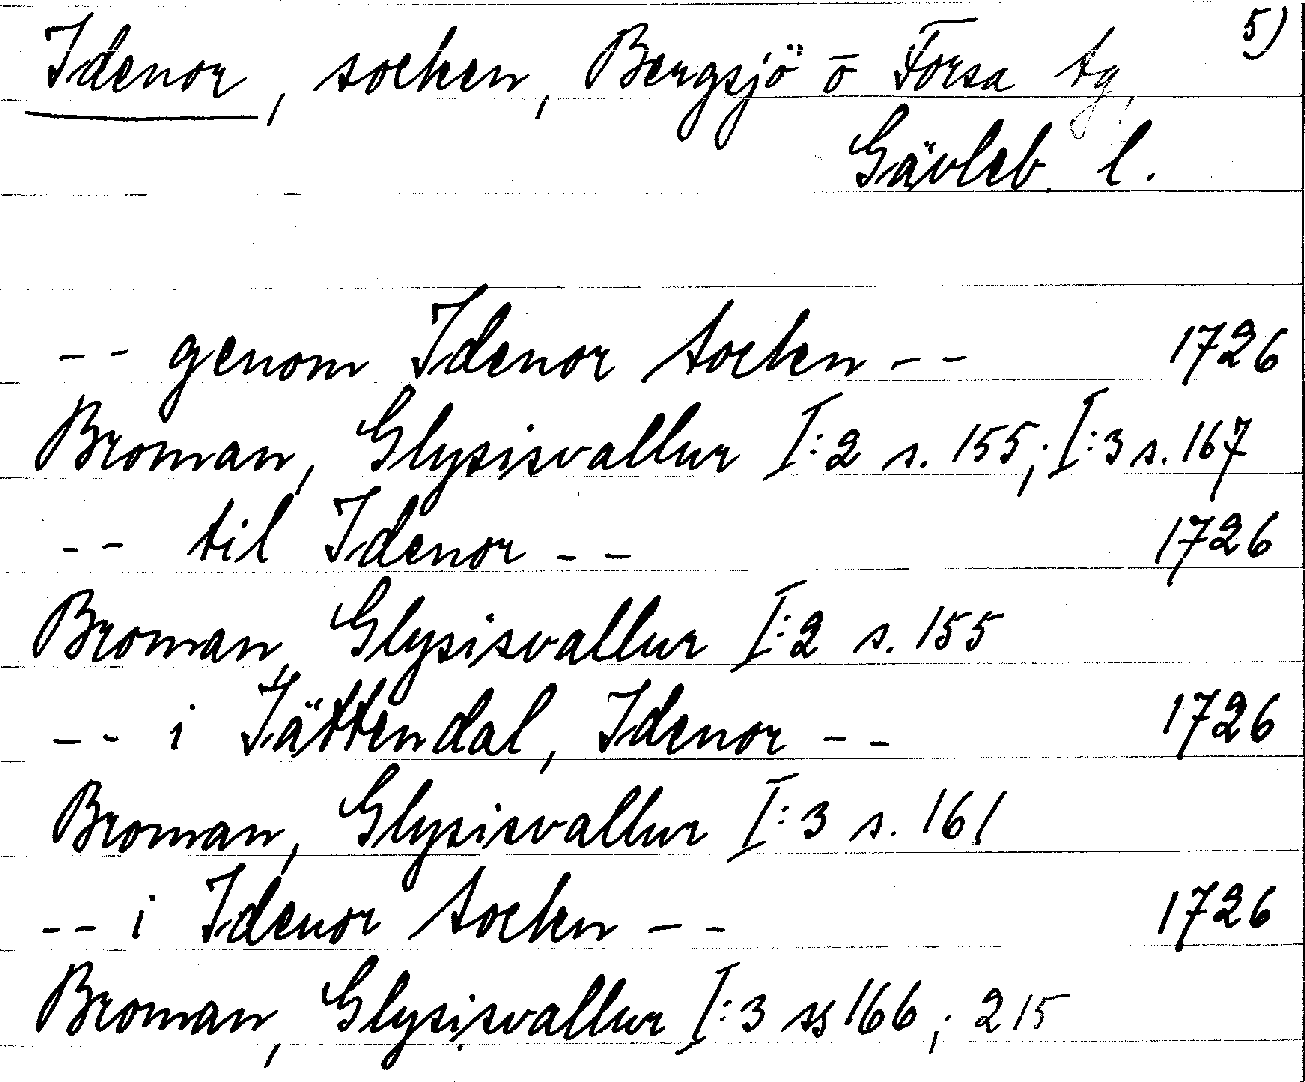 Idenor, socken, Bergsjö o Forsa tg, 5)
Gävleb. l.
-- genom Idenor Socken -- 1726
Broman, Glysisvallur I:2 s. 155; I:3 s. 167
-- til Idenor -- 1726
Broman, Glysisvallur I:2 s. 155
-- i Jättendal, Idenor -- 1726
Broman, Glysisvallur I:3 s. 161
-- i Idenor Socken -- 1726
Broman, Glysisvallur I:3 ss 166; 215